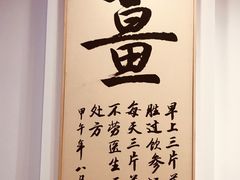 薑
早上三片
胜过饮参
每天三片
不劳医生
处方
甲午年八月